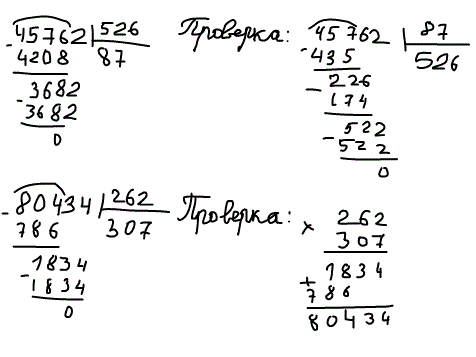 45762 | 526 Проверка: 45762 | 87
- 4208 87 - 435 526
3682 226
- 3682 - 174
0 522
- 522
0
80434 | 262 Проверка: 262
- 786 307 × 307
1834 1834
- 1834 + 786
0 80434